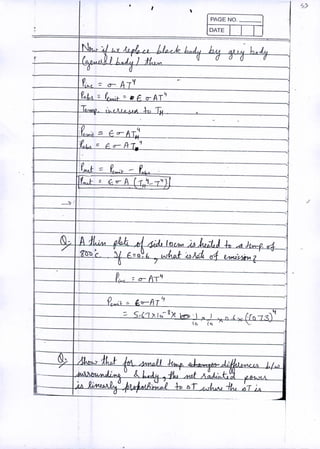 PAGE NO.
DATE
Now if we replace black body by grey body
(general body) then
Pinc = σAT⁴
Pabs = Pemit = eσAT⁴
Temp. increased to TH
Pemit = ϵσATH⁴
Pabs = ϵσAT⁴
Pnet = Pemit - Pabs
Pnet = ϵσA (TH⁴-T⁴)
→
Q: A thin plate of side 10cm is heated to a temp. of
800°c. If ϵ=0.6, what is rate of emission?
Pinc = σAT⁴
Pemit = ϵσAT⁴
= 5.67×10⁻⁸× 1/10 × 1/10 ×0.6×(1073)⁴
Q: Show that for small temp differences b/w
surrounding & body, the net radiated power
is linearly proportional to ΔT where the ΔT is